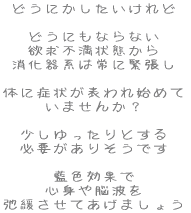 どうにかしたいけれど
どうにもならない
欲求不満状態から
消化器系は常に緊張し
体に症状が表われ始めて
いませんか？
少しゆったりとする
必要がありそうです
藍色効果で
心身や脳波を
弛緩させてあげましょう